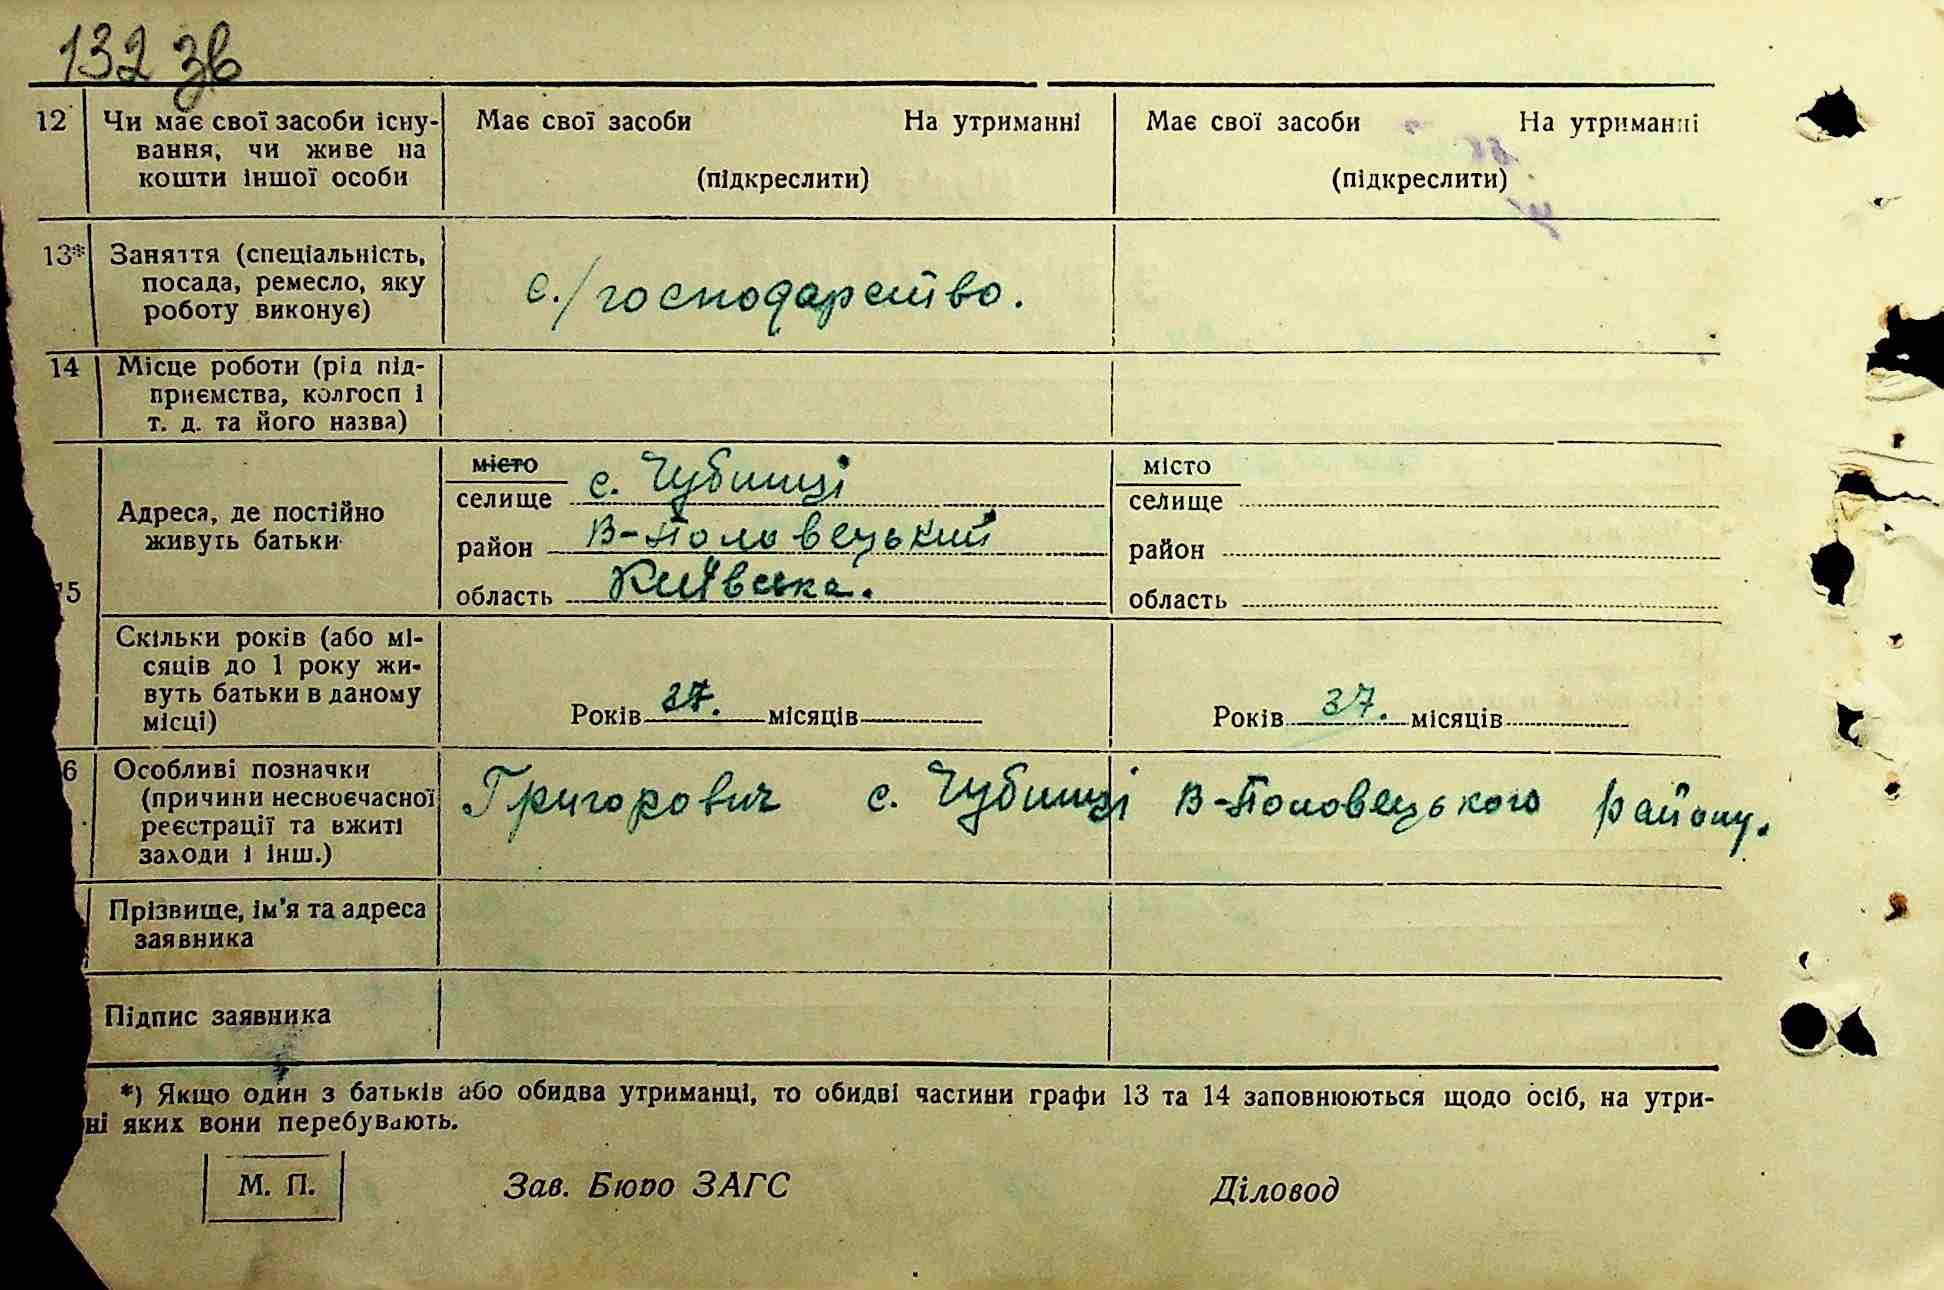 132 зв
12 Чи має свої засоби існу- Має свої засоби На утриманні Має свої засоби На утриманні
вання, чи живе на
кошти іншої особи (підкреслити) (підкреслити)
13* Заняття (спеціальність,
посада, ремесло, яку с./господарство.
роботу виконує)
14 Місце роботи (рід під-
приємства, колгосп і
т. д. та його назва)
місто с. Чубинці місто
селище селище
Адреса, де постійно
живуть батьки район В-Половецький район
15 область Київська. область
Скільки років (або мі-
сяців до 1 року жи-
вуть батьки в даному
місці) Років 37. місяців Років 37. місяців
6 Особливі позначки
(причини несвоєчасної Григорович с. Чубинці В-Половецького району.
реєстрації та вжиті
заходи і інш.)
Прізвище, ім'я та адреса
заявника
Підпис заявника
*) Якщо один з батьків або обидва утриманці, то обидві частини графи 13 та 14 заповнюються щодо осіб, на утри-
ні яких вони перебувають.
М. П. Зав. Бюро ЗАГС Діловод